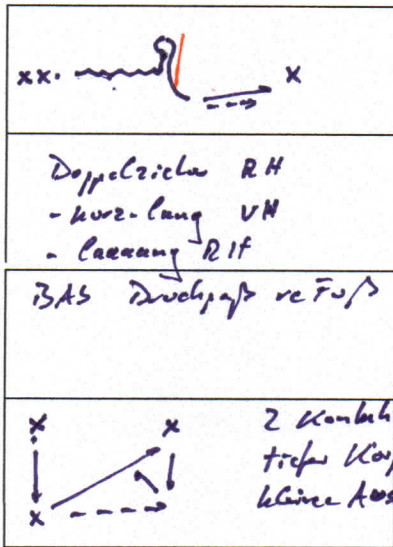 xx.
x
Doppelzieher RH
- kurz-lang VH
- laaaang RH
BAS Druckpaß re Fuß
x x
x
2 Kontakt
tiefer Körp
kleine Aus